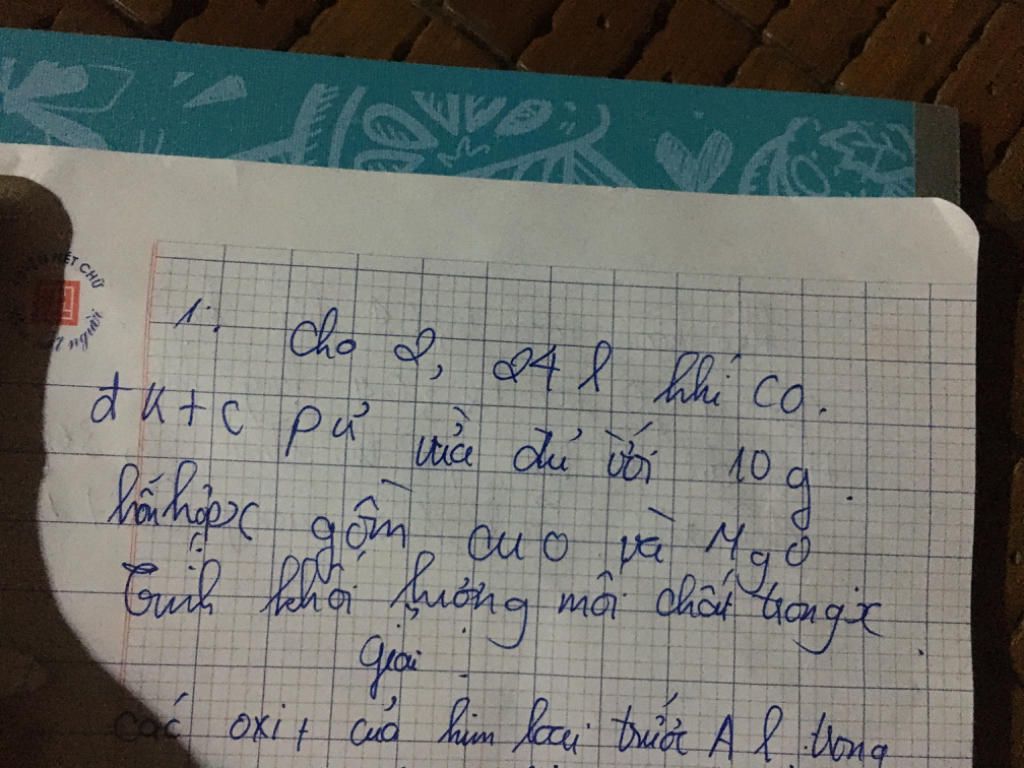 1. Cho 2,24 l khí CO.
đk+c pứ vừa đủ với 10g.
hỗn hợp x gồm cuo và Mgo
Tính khối lượng mỗi chất trong x.
Giải:
các oxit của kim loại trước Al trong